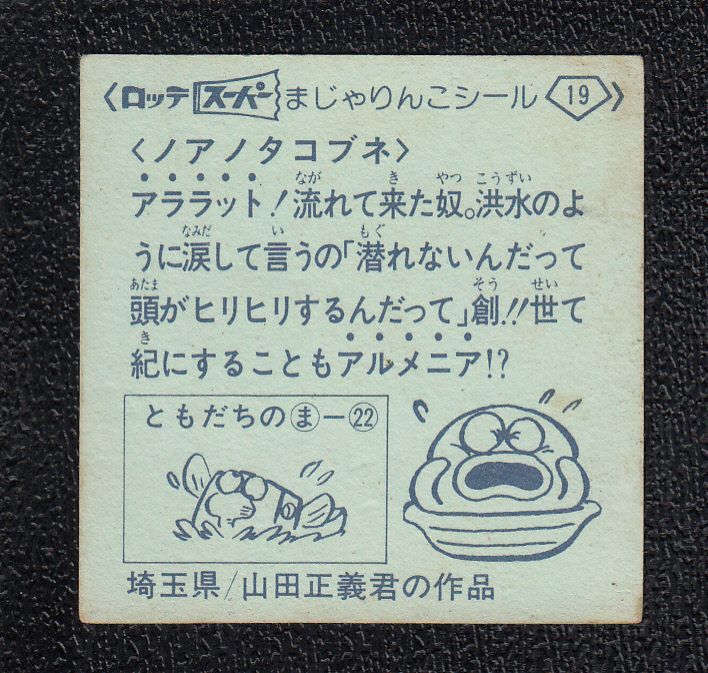 〈ロッテスーパーまじゃりんこシール 19〉
〈ノアノタコブネ〉
アララット!流れて来た奴。洪水のよ
うに涙して言うの「潜れないんだって
頭がヒリヒリするんだって」創!!世て
紀にすることもアルメニア!?
ともだちのま－22
埼玉県/山田正義君の作品